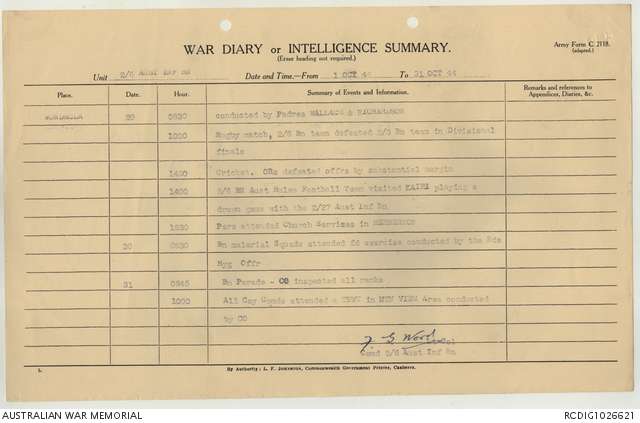 WAR DIARY or INTELLIGENCE SUMMARY.
(Erase heading not required.)
Army Form C. 2118.
(adapted.)
Unit 2/6 AUST INF BN Date and Time.—From 1 OCT 44 To 31 OCT 44
Place. Date. Hour. Summary of Events and Information. Remarks and references to Appendices, Diaries, &c.
WONDECLA 29 0930 conducted by Padres WALLACE & RICHARDSON
1000 Rugby match, 2/6 Bn team defeated 2/5 Bn team in Divisional
finals
1400 Cricket. ORs defeated offrs by substantial margin
1400 2/6 BN Aust Rules Football Team visited KAIRI playing a
drawn game with the 2/27 Aust Inf Bn
1930 Pers attended Church Services in HERBERTON
30 0830 Bn malarial Squads attended Bd exercise conducted by the Bde
Hyg Offr
31 0845 Bn Parade - CO inspected all ranks
1000 All Coy Comds attended a TEWT in MTN VIEW Area conducted
by CO
J G Wood Lt Col
Comd 2/6 Aust Inf Bn
By Authority: L. F. Johnston, Commonwealth Government Printer, Canberra.
AUSTRALIAN WAR MEMORIAL
RCDIG1026621